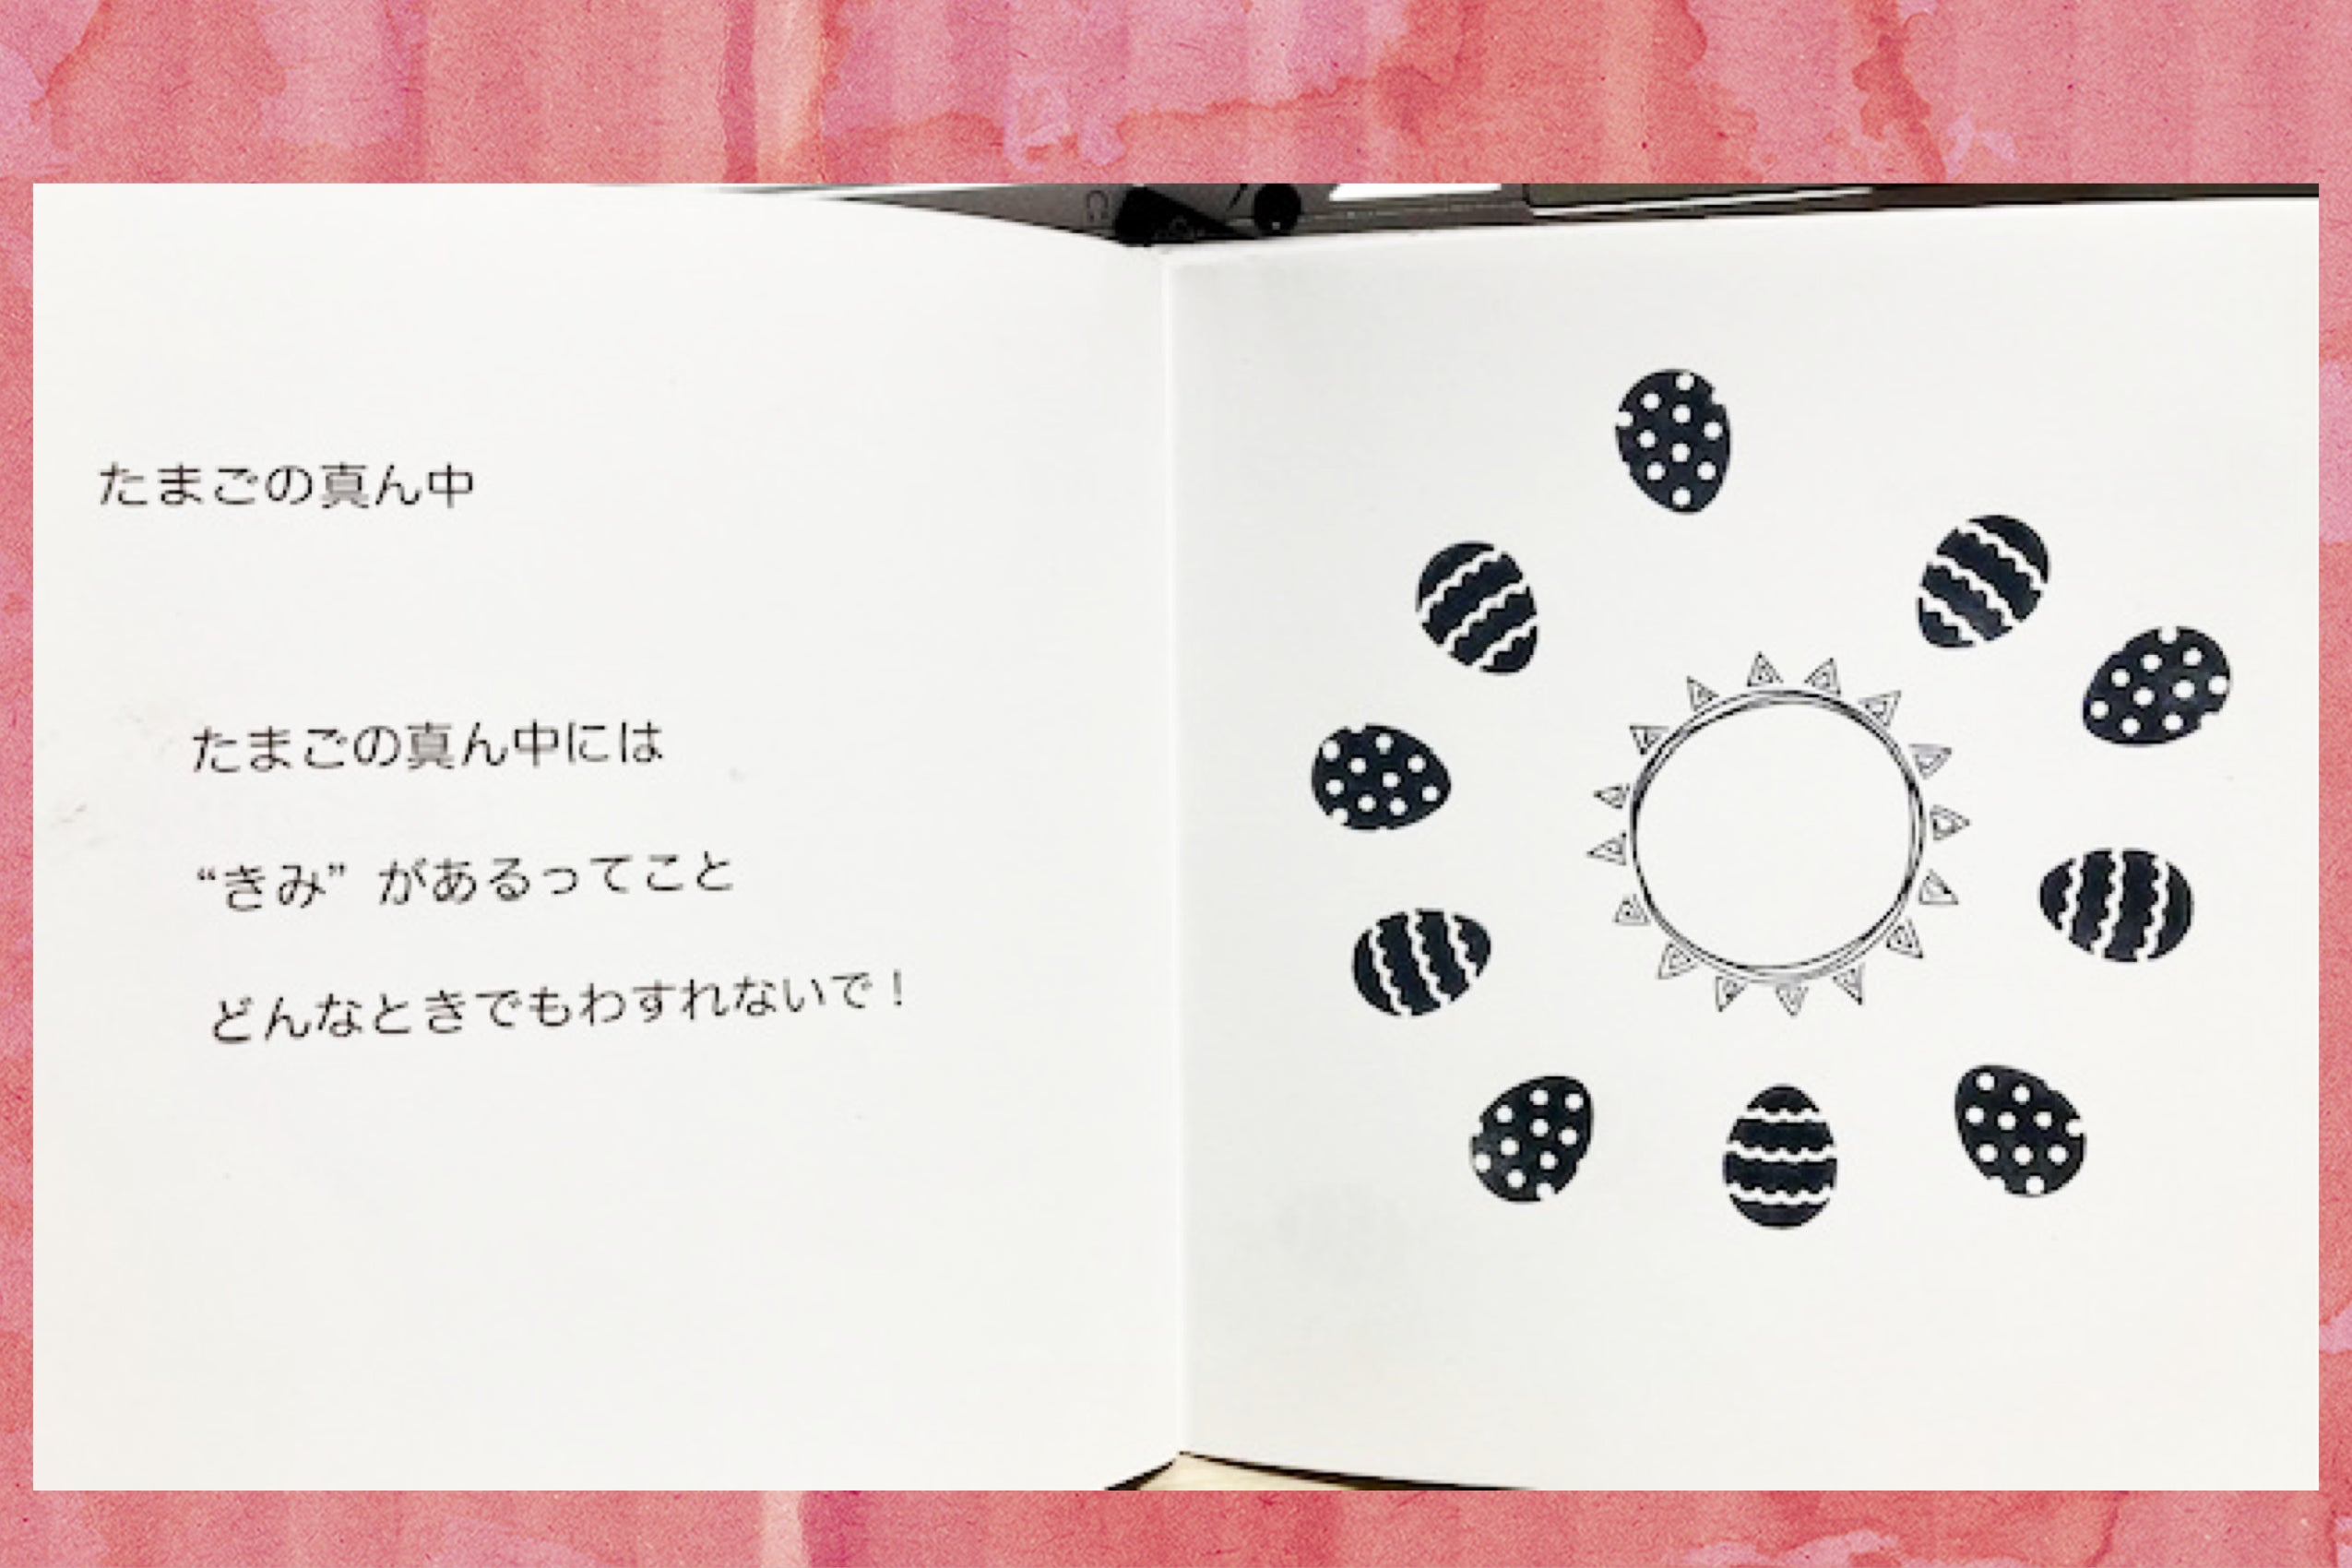 たまごの真ん中
たまごの真ん中には
“きみ” があるってこと
どんなときでもわすれないで！